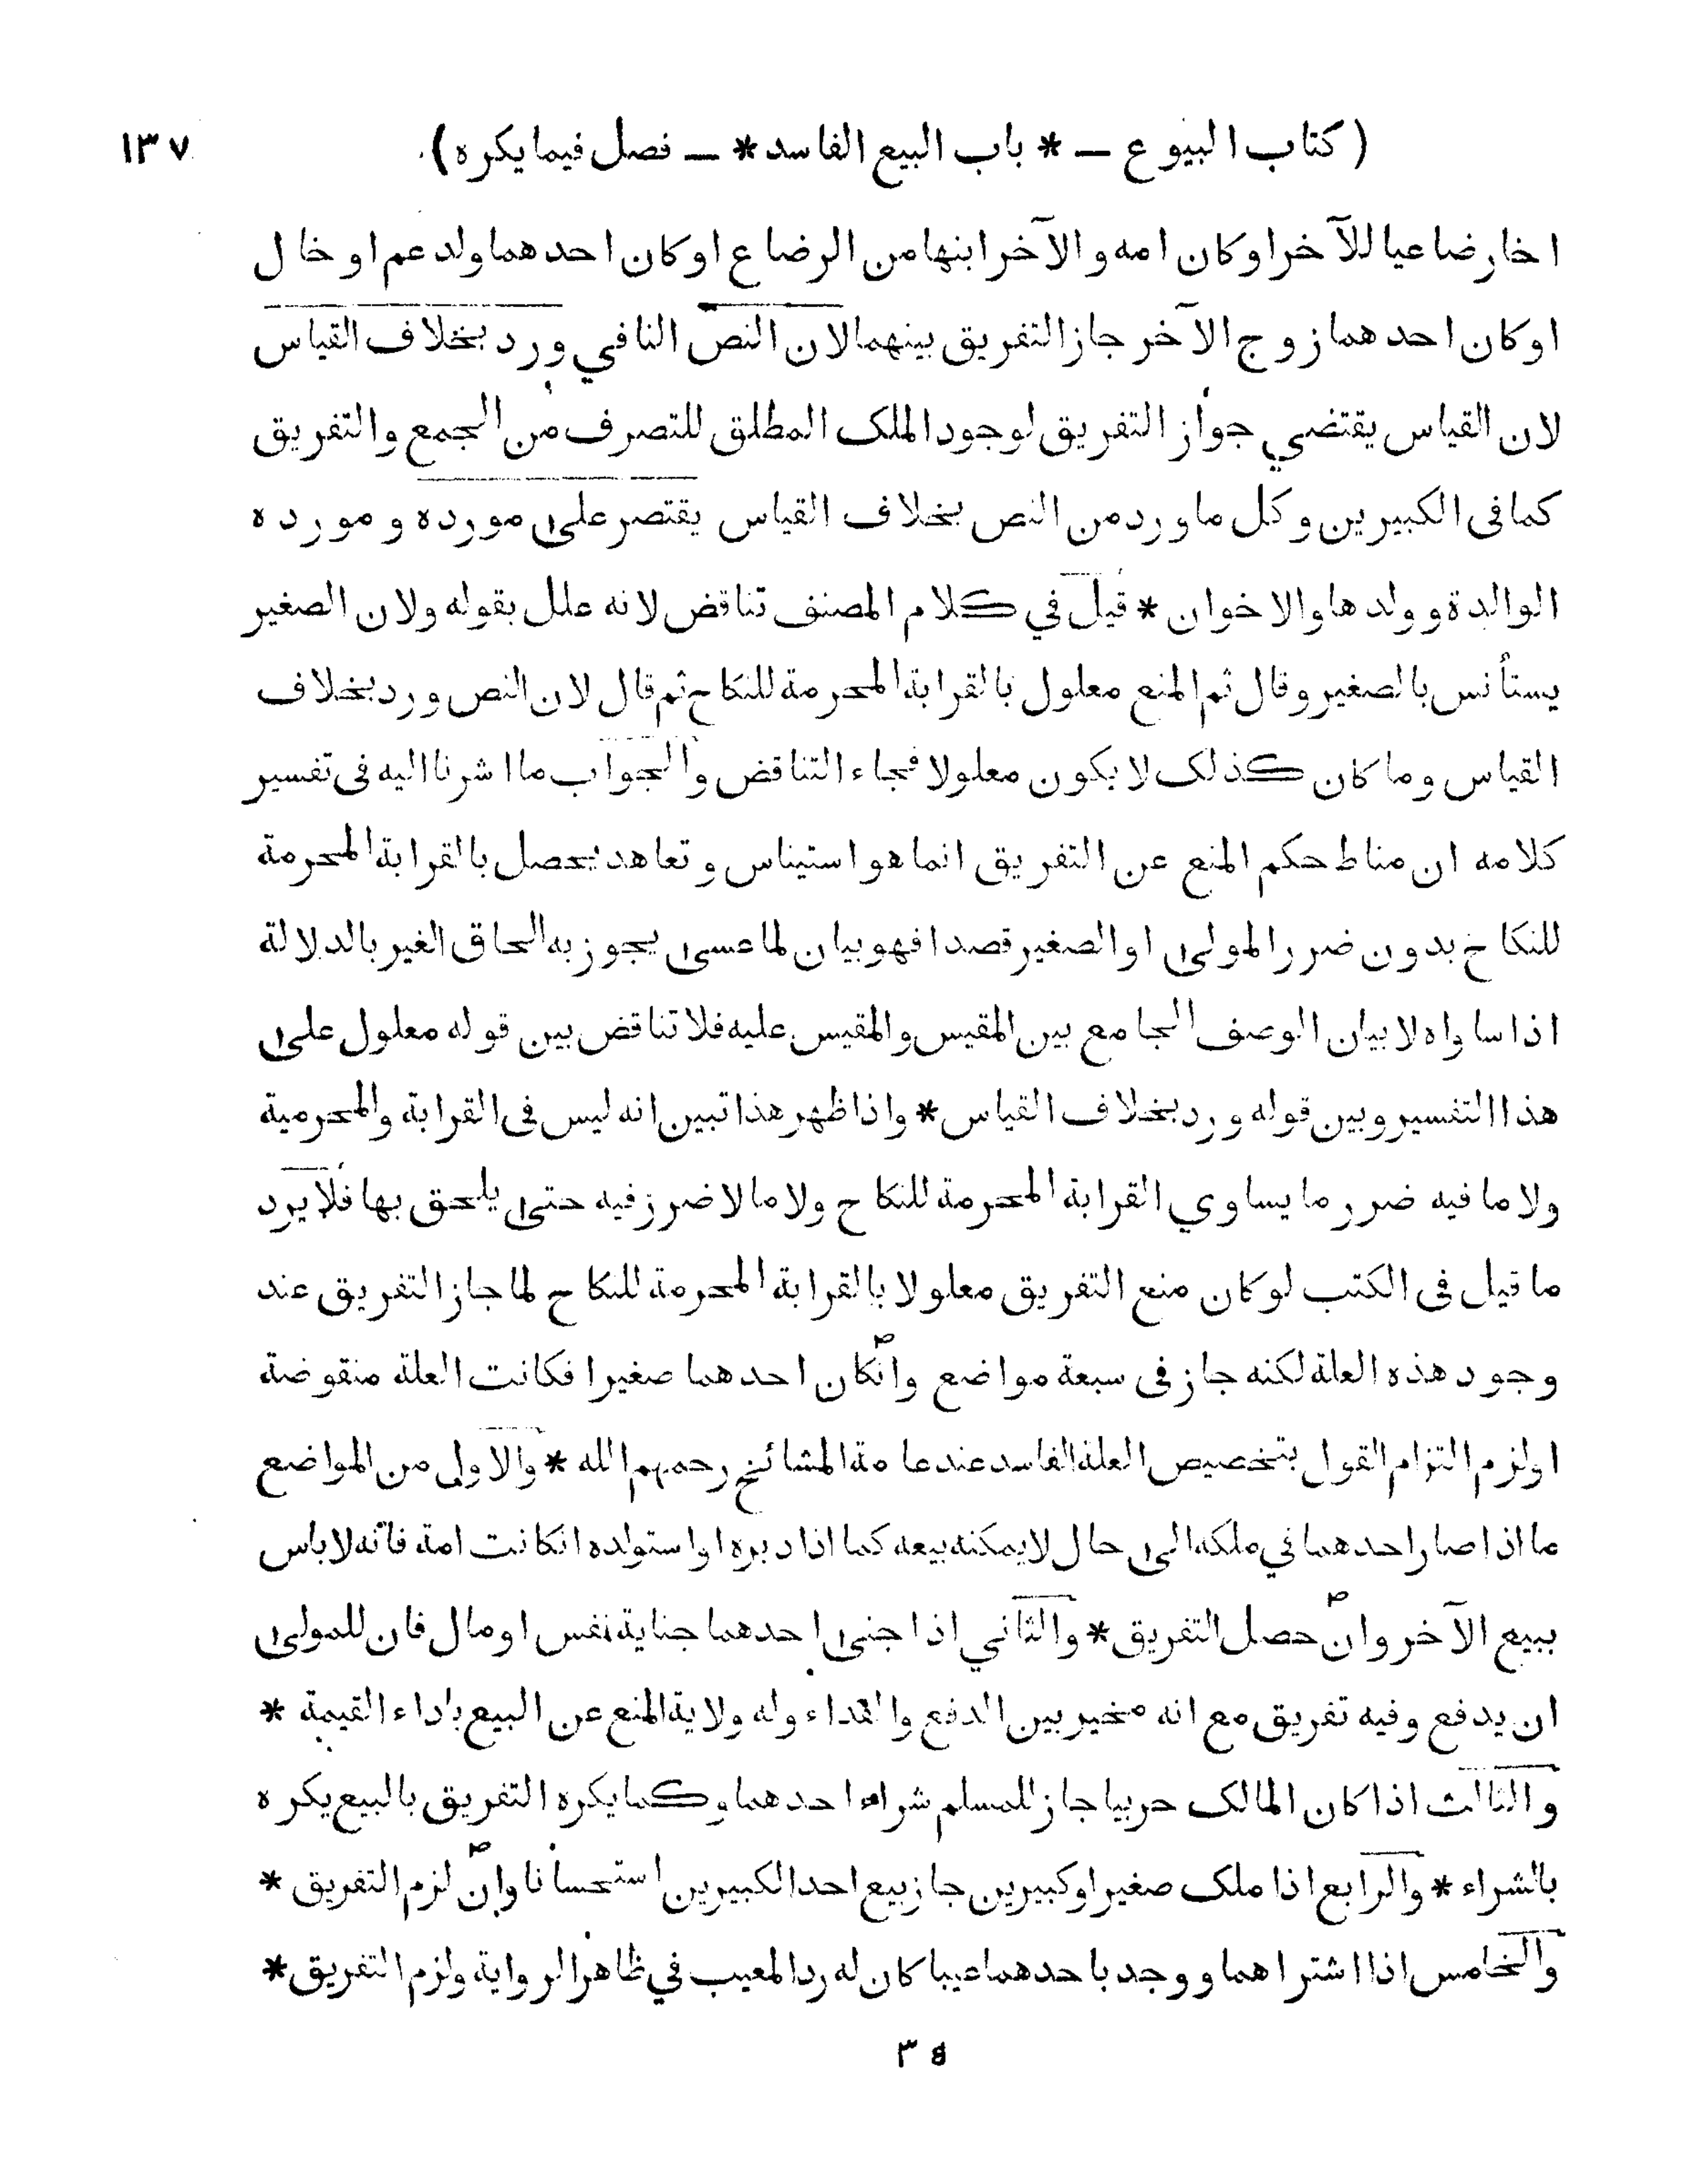 (كتاب البيوع — * باب البيع الفاسد * — فصل فيما يكره) ١٣٧
اخا رضاعيا للآخر او كان امه والآخر ابنها من الرضاع او كان احدهما ولد عم او خال
او كان احدهما زوج الآخر جاز التفريق بينهما لان النص النافي ورد بخلاف القياس
لان القياس يقتضي جواز التفريق لوجود الملك المطلق للتصرف من الجمع والتفريق
كما فى الكبيرين وكل ما ورد من النص بخلاف القياس يقتصر على مورده ومورده
الوالدة وولدها والاخوان * قيل في كلام المصنف تناقض لانه علل بقوله ولان الصغير
يستأنس بالصغير وقال ثم المنع معلول بالقرابة المحرمة للنكاح ثم قال لان النص ورد بخلاف
القياس وما كان كذلك لا يكون معلولا فجاء التناقض والجواب ما اشرنا اليه فى تفسير
كلامه ان مناط حكم المنع عن التفريق انما هو استيناس وتعاهد يحصل بالقرابة المحرمة
للنكاح بدون ضرر المولى او الصغير قصدا فهو بيان لما عسى يجوز به الحاق الغير بالدلالة
اذا ساواه لا بيان الوصف الجامع بين المقيس والمقيس عليه فلا تناقض بين قوله معلول على
هذا التفسير وبين قوله ورد بخلاف القياس * واذا ظهر هذا تبين انه ليس فى القرابة والمحرمية
ولا ما فيه ضرر ما يساوي القرابة المحرمة للنكاح ولا ما لا ضرر فيه حتى يلحق بها فلا يرد
ما قيل فى الكتب لو كان منع التفريق معلولا بالقرابة المحرمة للنكاح لما جاز التفريق عند
وجود هذه العلة لكنه جاز فى سبعة مواضع وانكان احدهما صغيرا فكانت العلة منقوضة
او لزم التزام القول بتخصيص العلة الفاسد عند عامة المشائخ رحمهم الله * والاول من المواضع
ما اذا صار احدهما في ملكه الى حال لا يمكنه بيعه كما اذا دبره او استولده انكانت امة فانه لا باس
ببيع الآخر وان حصل التفريق * والثاني اذا جنى احدهما جناية نفس او مال فان للمولى
ان يدفع وفيه تفريق مع انه مخير بين الدفع والفداء وله ولاية المنع عن البيع باداء القيمة *
والثالث اذا كان المالك حربيا جاز للمسلم شراء احدهما وكما يكره التفريق بالبيع يكره
بالشراء * والرابع اذا ملك صغيرا وكبيرين جاز بيع احد الكبيرين استحسانا وان لزم التفريق *
والخامس اذا اشتراهما ووجد باحدهما عيبا كان له رد المعيب في ظاهر الرواية ولزم التفريق *